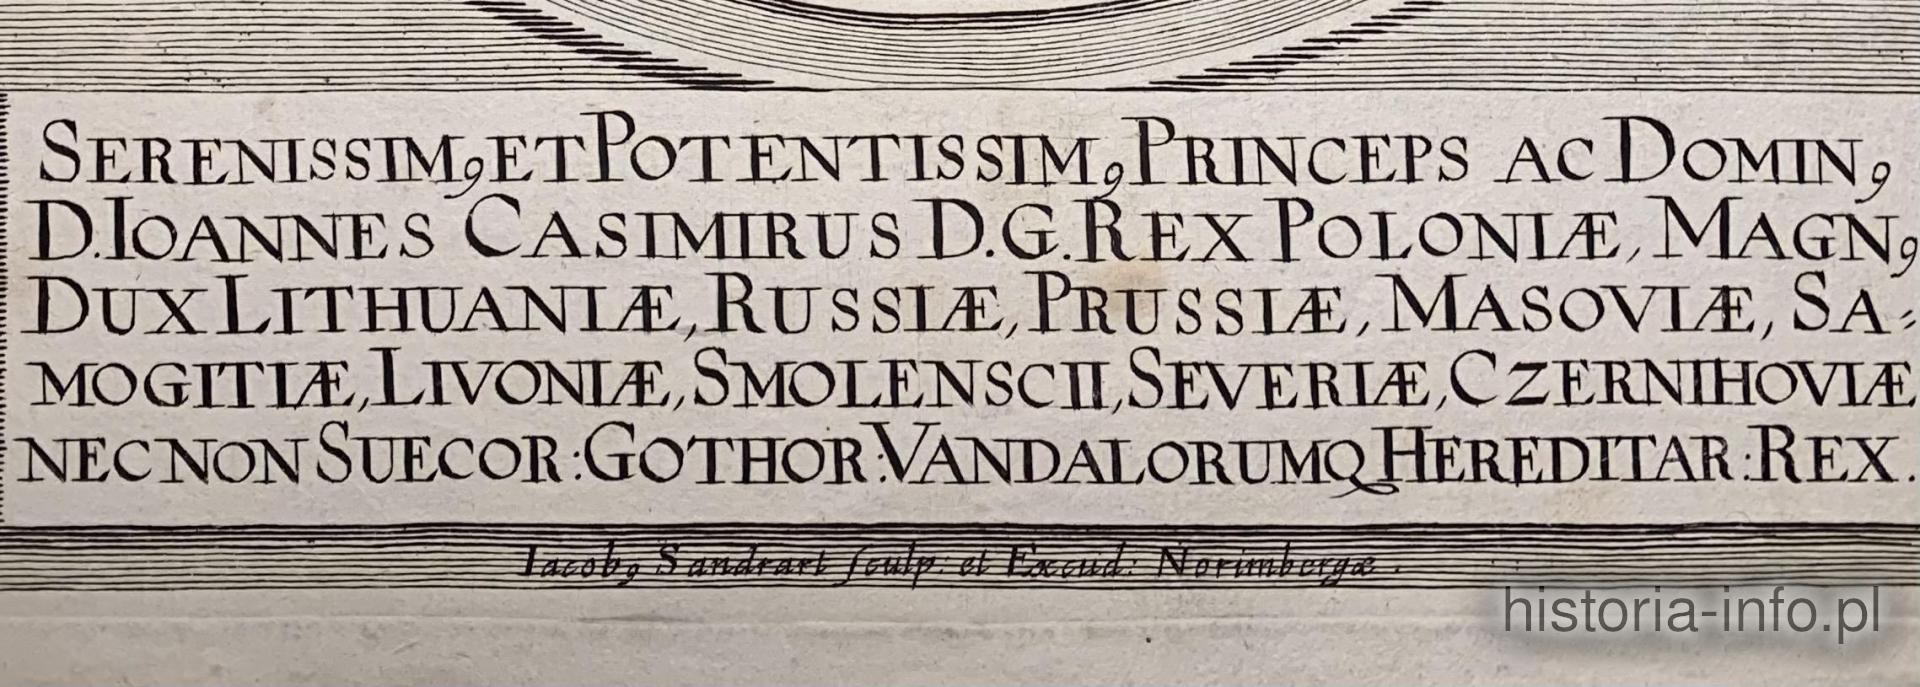 SERENISSIMꝰ ET POTENTISSIMꝰ PRINCEPS AC DOMINꝰ
D. IOANNES CASIMIRUS D.G. REX POLONIÆ, MAGNꝰ
DUX LITHUANIÆ, RUSSIÆ, PRUSSIÆ, MASOVIÆ, SA-
MOGITIÆ, LIVONIÆ, SMOLENSCII, SEVERIÆ, CZERNIHOVIÆ
NEC NON SUECOR: GOTHOR: VANDALORUMQ HEREDITAR: REX.
Iacobꝰ Sandrart ſculp: et Excud: Norimbergæ.
historia-info.pl